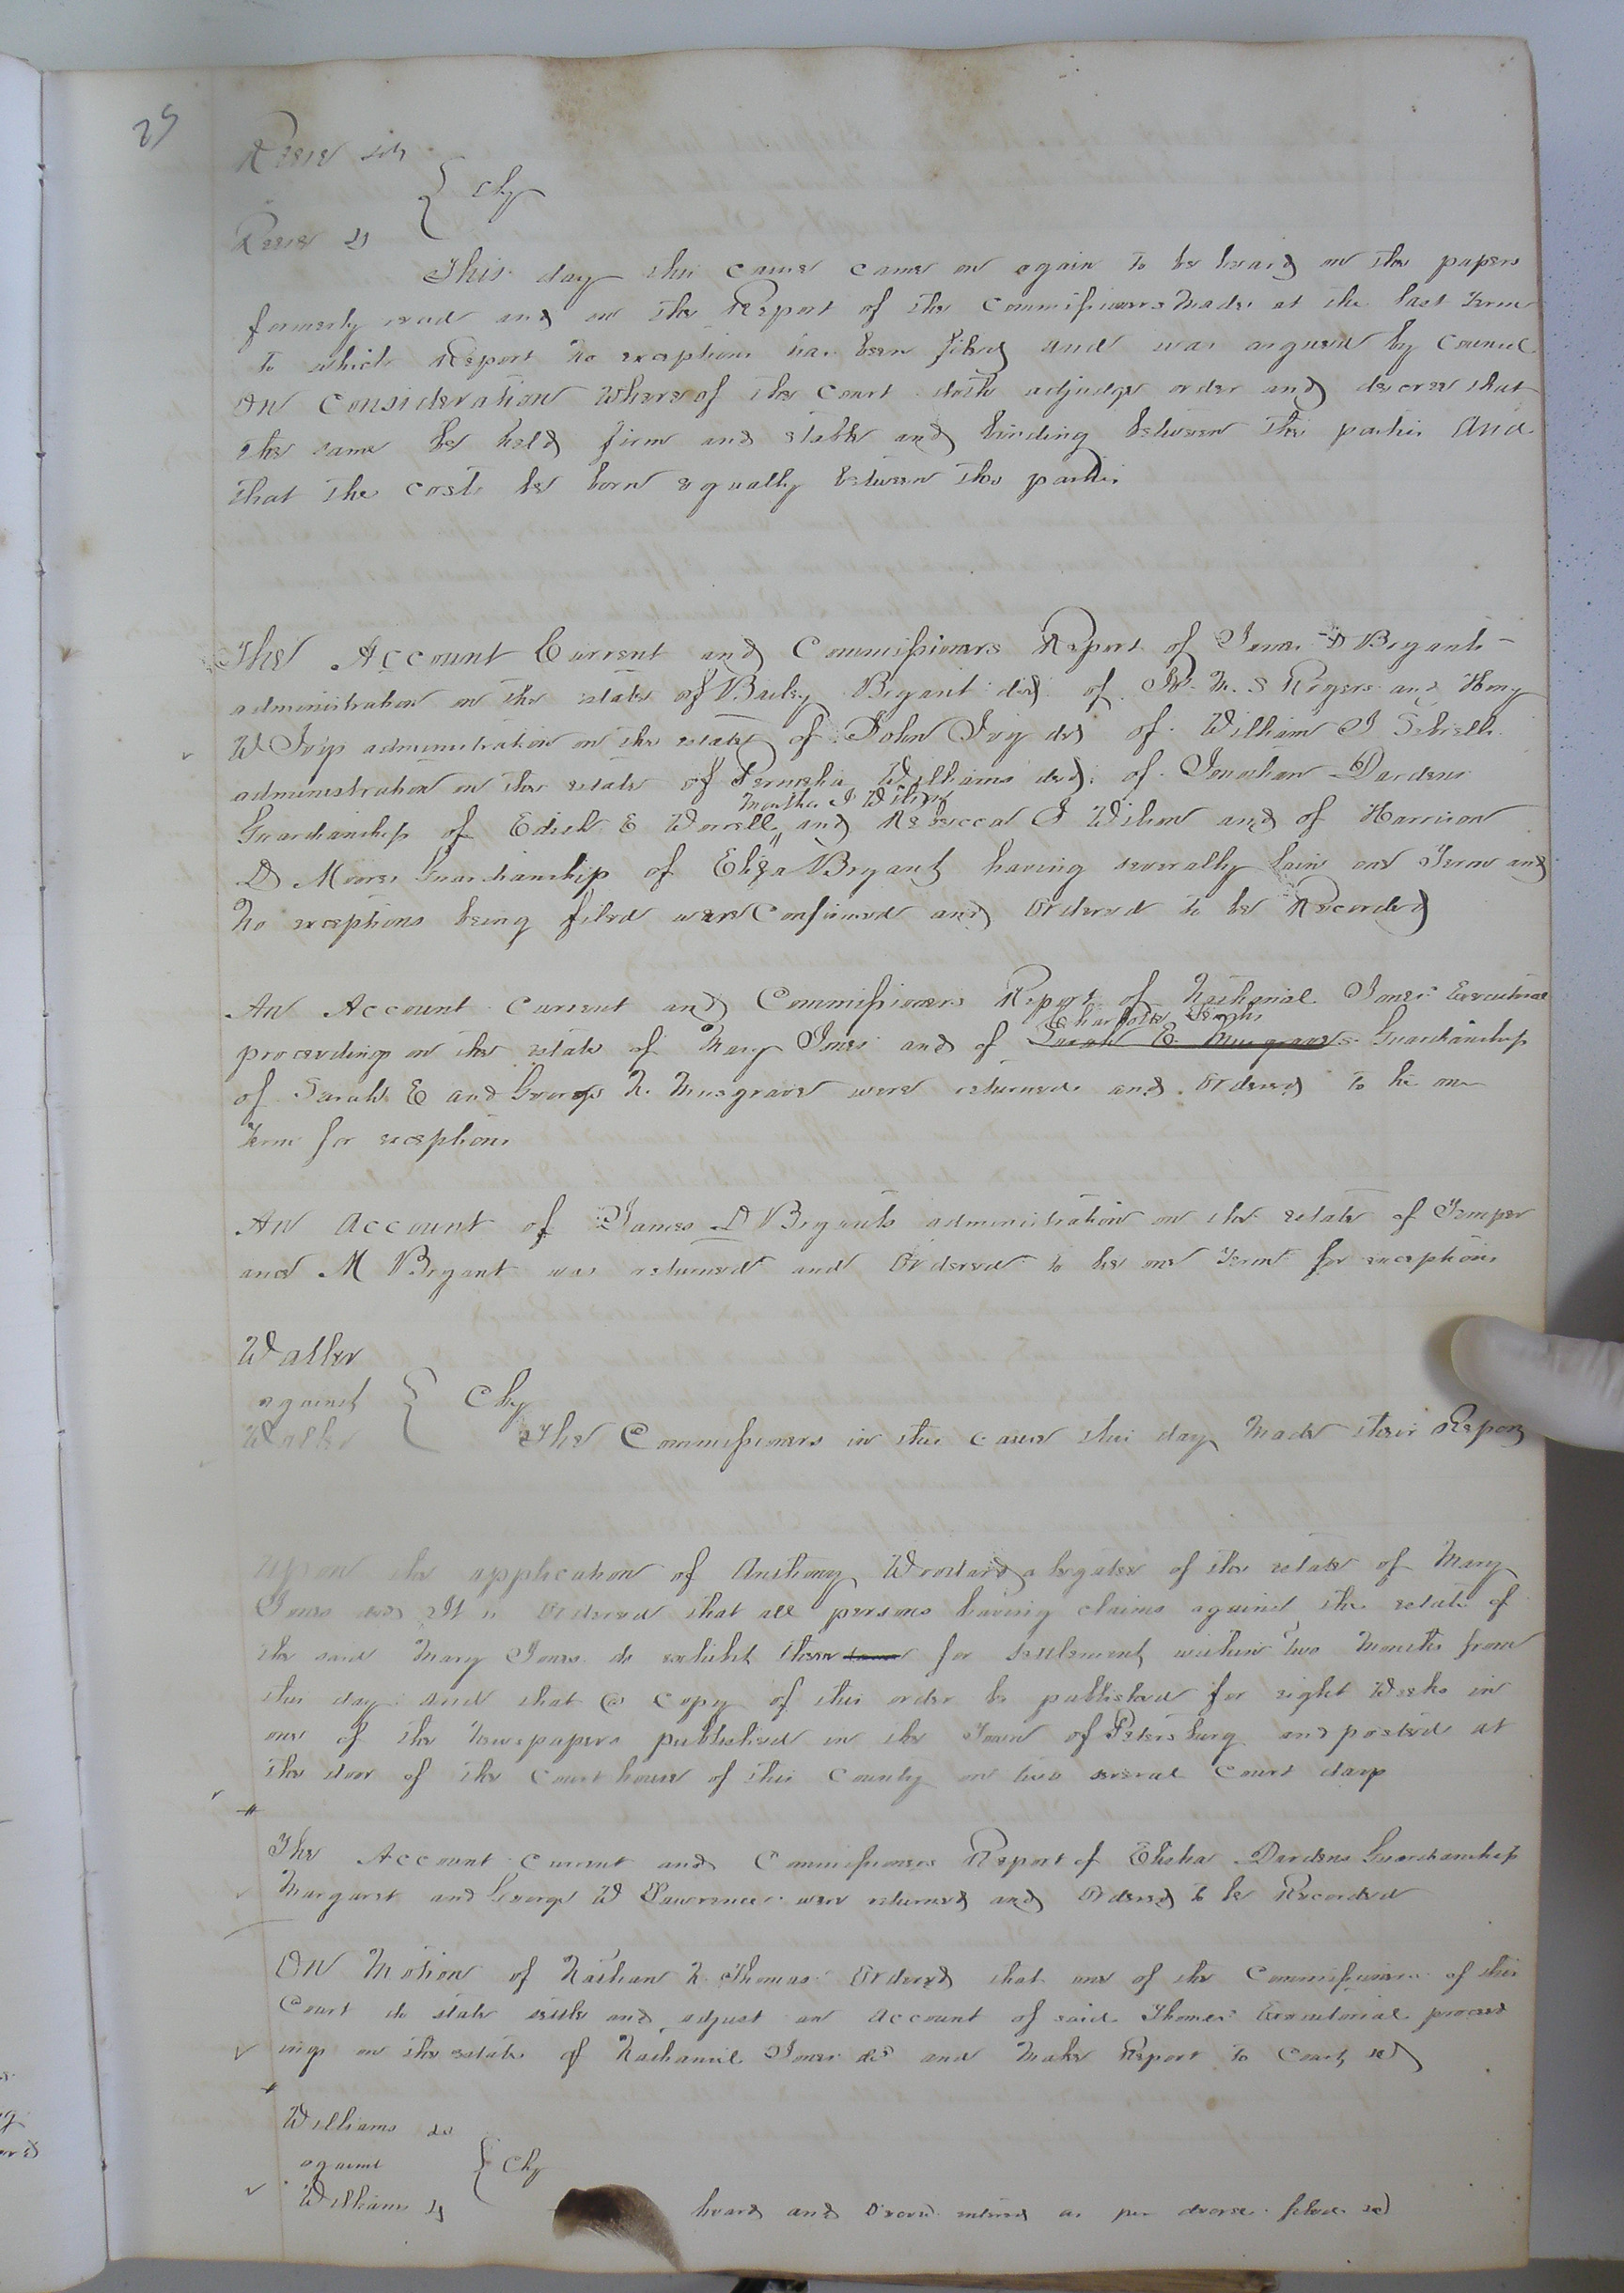 25
Reese
Chy
Reese
This day this cause came on again to be heard on the papers
formerly read and on the Report of the Commissioners made at the last term
to which Report no exceptions has been filed and was argued by Councel
On Consideration Whereof the Court doth adjudge order and decree that
the same be held firm and stable and binding between the parties And
that the costs be born equally between the parties
The Account Current and Commissioners Report of James D Bryants
administration on the estate of Bailey Bryant decd. of N. S Rogers and
W administration on the estate of John Ivy decd of William J Sebrells
administration on the estate of Williams decd. of Jonathan Dardens
Martha J Wilson
Guardianship of Edith E Worrell, and Rebecca J Wilson and of Harrison
D Moores Guardianship of Eliza Bryant having severally lain one Term and
No exceptions being filed were Confirmed and Ordered to be Recorded
An Account Current and Commissioners Report of Nathaniel Jones Executorial
Charlotte
proceedings on the estate of Mary Jones and of Sarah E. Musgraves Guardianship
of Sarah E and George N. Musgrave were returned and Ordered to lie one
Term for exceptions
An Account of James D Bryants administration on the estate of Temper
and M Bryant was returned and Ordered to lie one Term for exceptions
Waller
against
Chy
Waller
The Commissioners in this cause this day Made their Report
Upon the application of Anthony a legatee of the estate of Mary
Jones decd It is Ordered that all persons having claims against the estate of
the said Mary Jones do exhibit them for settlement within two Months from
this day and that a Copy of this order be published for eight Weeks in
one of the Newspapers published in the Town of Petersburg and posted at
the door of the Court house of this County on two several Court days
The Account Current and Commissioners Report of Elisha Dardens Guardianship
Margaret and George W Lawrence were returned and Ordered to be Recorded
On Motion of Nathan N. Thomas Ordered that one of the Commissioners of this
Court do state settle and adjust an Account of said Thomas Executorial proceed
ings on the estate of Nathaniel Jones decd and Make Report to Court
Williams
against
Chy
Williams
heard and Decree entered as per decree filed